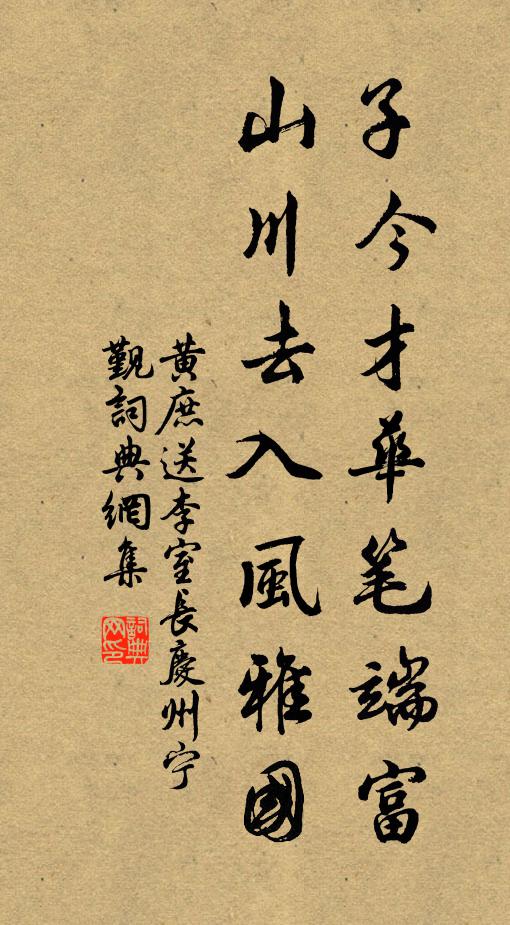 子今才華笔端富
山川去入風雅國
黄庶送李室長慶州宁
覲詞典網集
詞典
网印